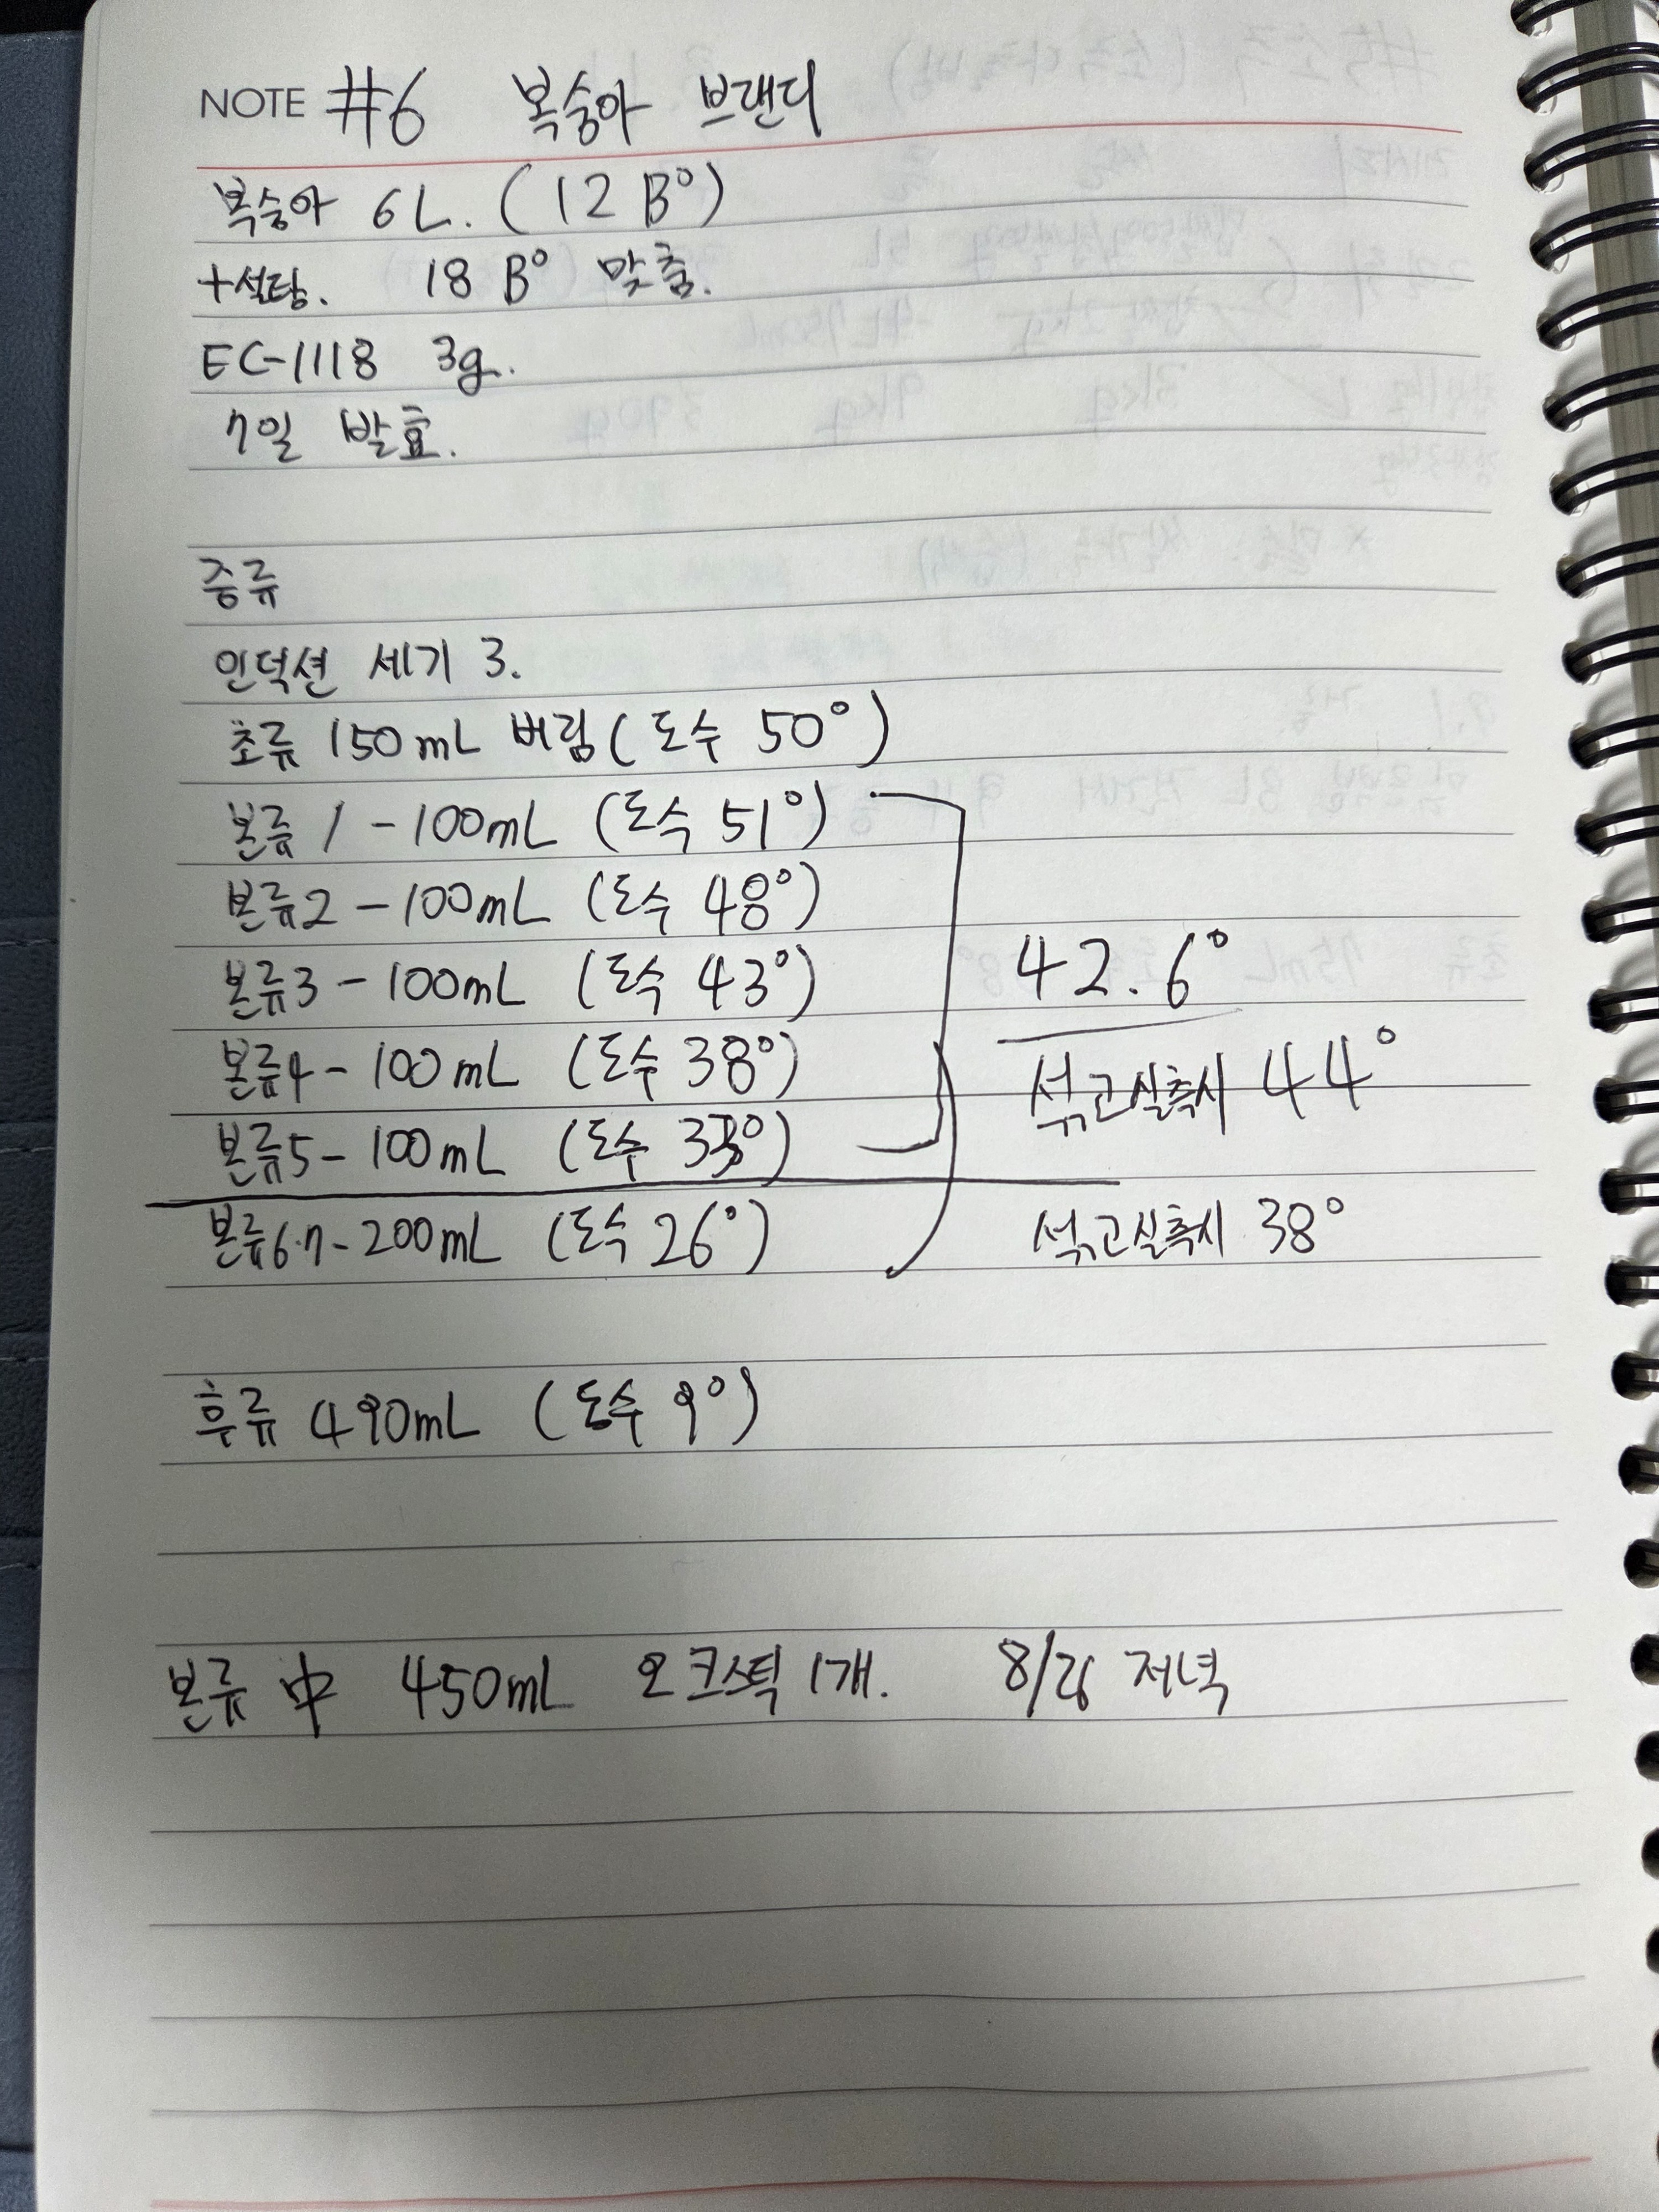 NOTE #6 복숭아 브랜디
복숭아 6L. (12 B°)
+설탕. 18 B° 맞춤.
EC-1118 3g.
7일 발효.
증류
인덕션 세기 3.
초류 150mL 버림 (도수 50°)
본류 1 - 100mL (도수 51°)
본류2 - 100mL (도수 48°)
본류3 - 100mL (도수 43°)
42.6°
본류4 - 100mL (도수 38°)
섞고실측시 44°
본류5 - 100mL (도수 33°)
본류6.7 - 200mL (도수 26°) 섞고실측시 38°
후류 490mL (도수 9°)
본류 中 450mL 오크스틱 1개. 8/26 저녁